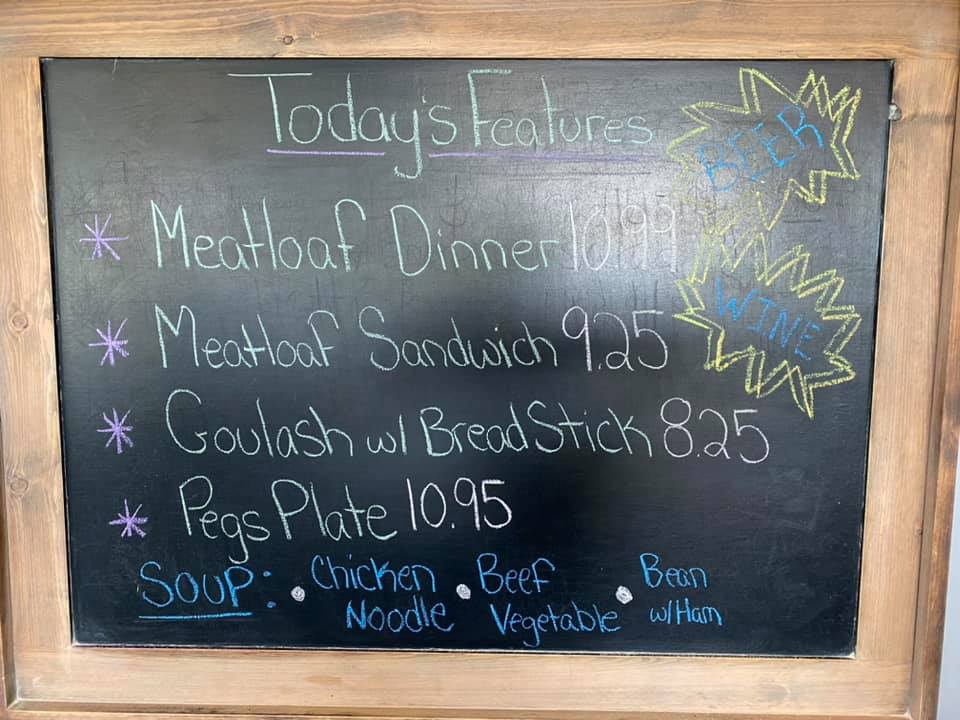 Today's Features
BEER
* Meatloaf Dinner 10.99
WINE
* Meatloaf Sandwich 9.25
* Goulash w/ Bread Stick 8.25
* Pegs Plate 10.95
Soup: • Chicken • Beef • Bean
Noodle Vegetable w/ Ham